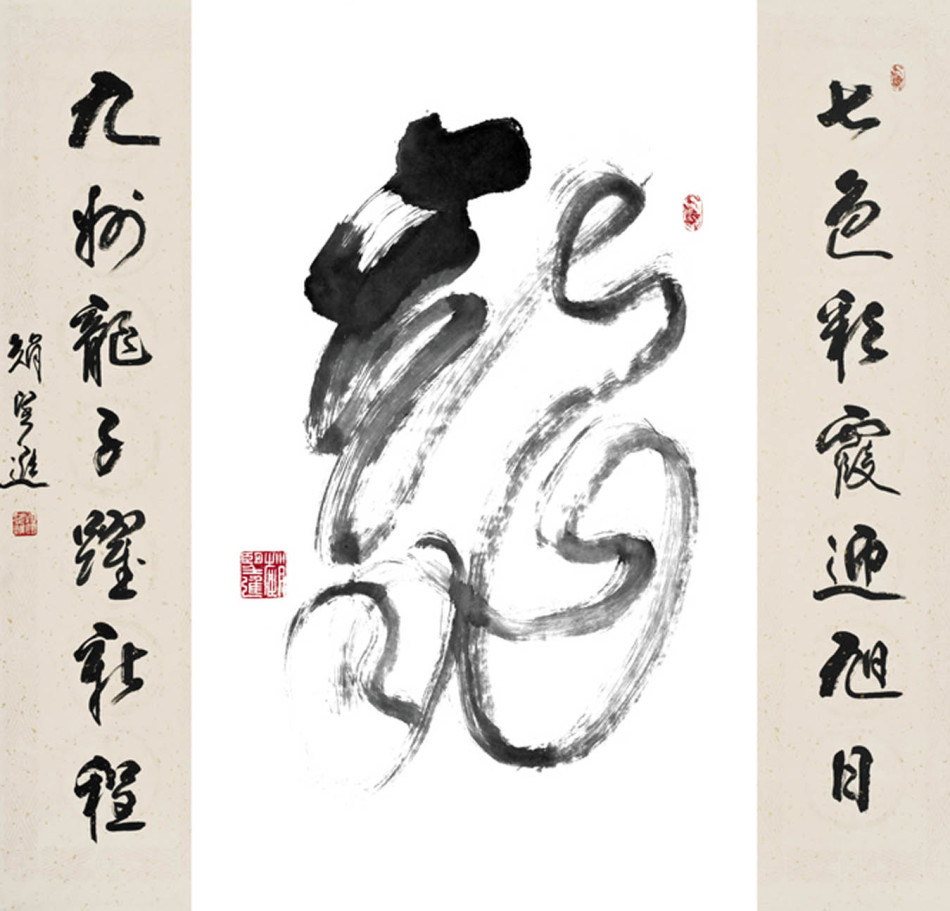 七色彩霞迎旭日
龍
九州龍子躍新程